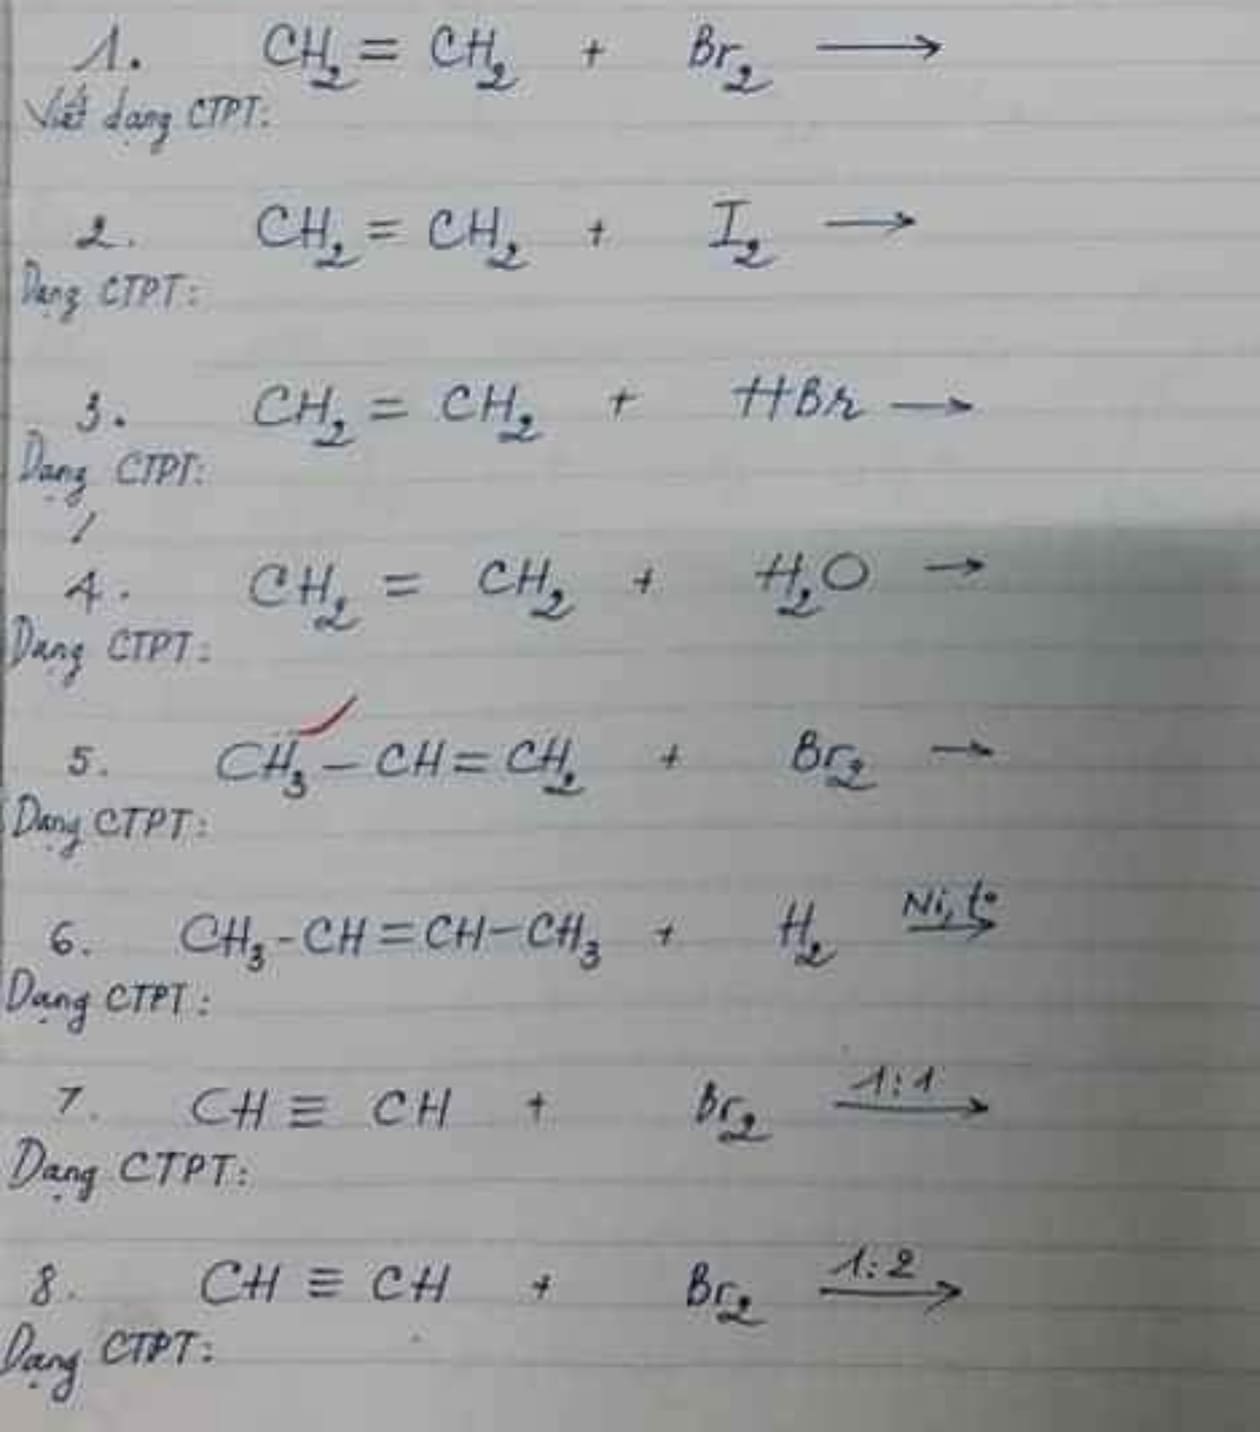 1. CH₂ = CH₂ + Br₂ ⟶
Viết dạng CTPT:
2. CH₂ = CH₂ + I₂ ⟶
Dạng CTPT:
3. CH₂ = CH₂ + HBr ⟶
Dạng CTPT:
4. CH₂ = CH₂ + H₂O →
Dạng CTPT:
5. CH₃ – CH = CH₂ + Br₂ →
Dạng CTPT:
6. CH₃ - CH = CH – CH₃ + H₂ Ni, t° →
Dạng CTPT:
7. CH ≡ CH + Br₂ 1:1 ⟶
Dạng CTPT:
8. CH ≡ CH + Br₂ 1:2 ⟶
Dạng CTPT: